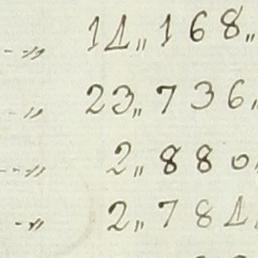 --„ 14„168„
„ 23„736„
--„ 2„880„
-„ 2„784„